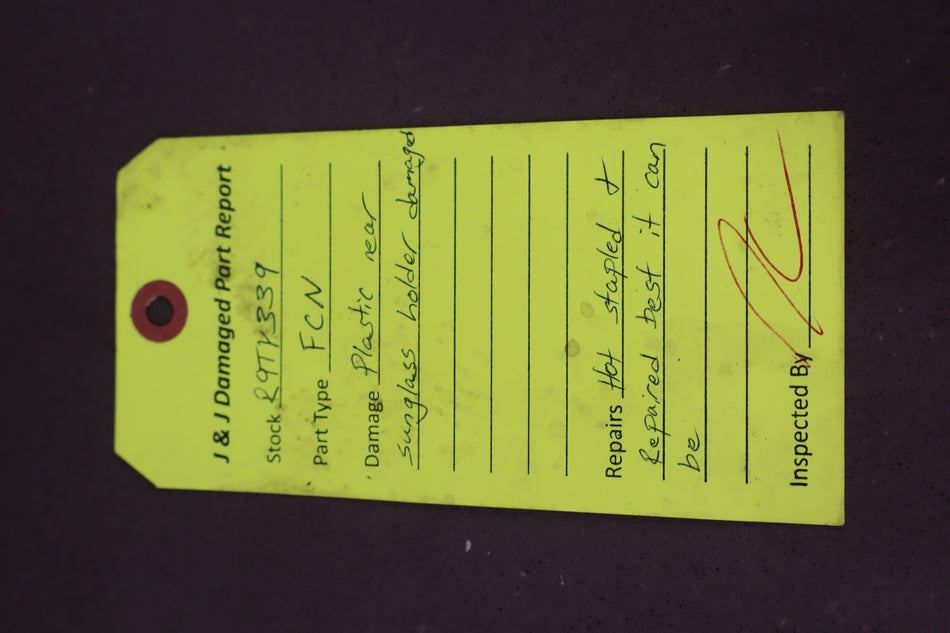 J & J Damaged Part Report
Stock R9TK339
Part Type FCN
Damage Plastic near
sunglass holder damaged
Repairs Hot stapled &
Repaired best it can
be
Inspected By